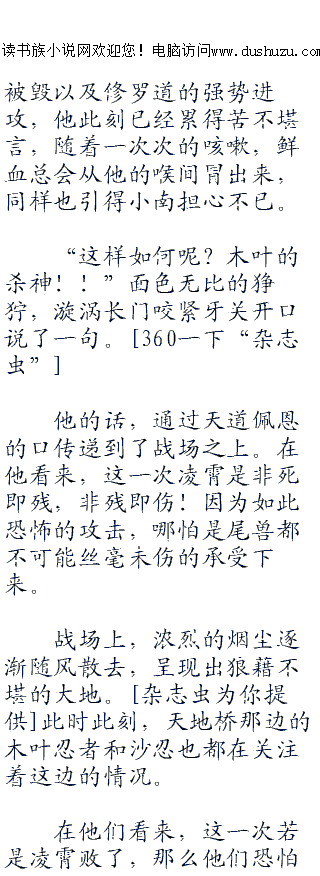 读书族小说网欢迎您！电脑访问www.dushuzu.com
被毁以及修罗道的强势进
攻，他此刻已经累得苦不堪
言，随着一次次的咳嗽，鲜
血总会从他的喉间冒出来，
同样也引得小南担心不已。
“这样如何呢？木叶的
杀神！！”面色无比的狰
狞，漩涡长门咬紧牙关开口
说了一句。[360一下“杂志
虫”]
他的话，通过天道佩恩
的口传递到了战场之上。在
他看来，这一次凌霄是非死
即残，非残即伤！因为如此
恐怖的攻击，哪怕是尾兽都
不可能丝毫未伤的承受下
来。
战场上，浓烈的烟尘逐
渐随风散去，呈现出狼藉不
堪的大地。[杂志虫为你提
供]此时此刻，天地桥那边的
木叶忍者和沙忍也都在关注
着这边的情况。
在他们看来，这一次若
是凌霄败了，那么他们恐怕